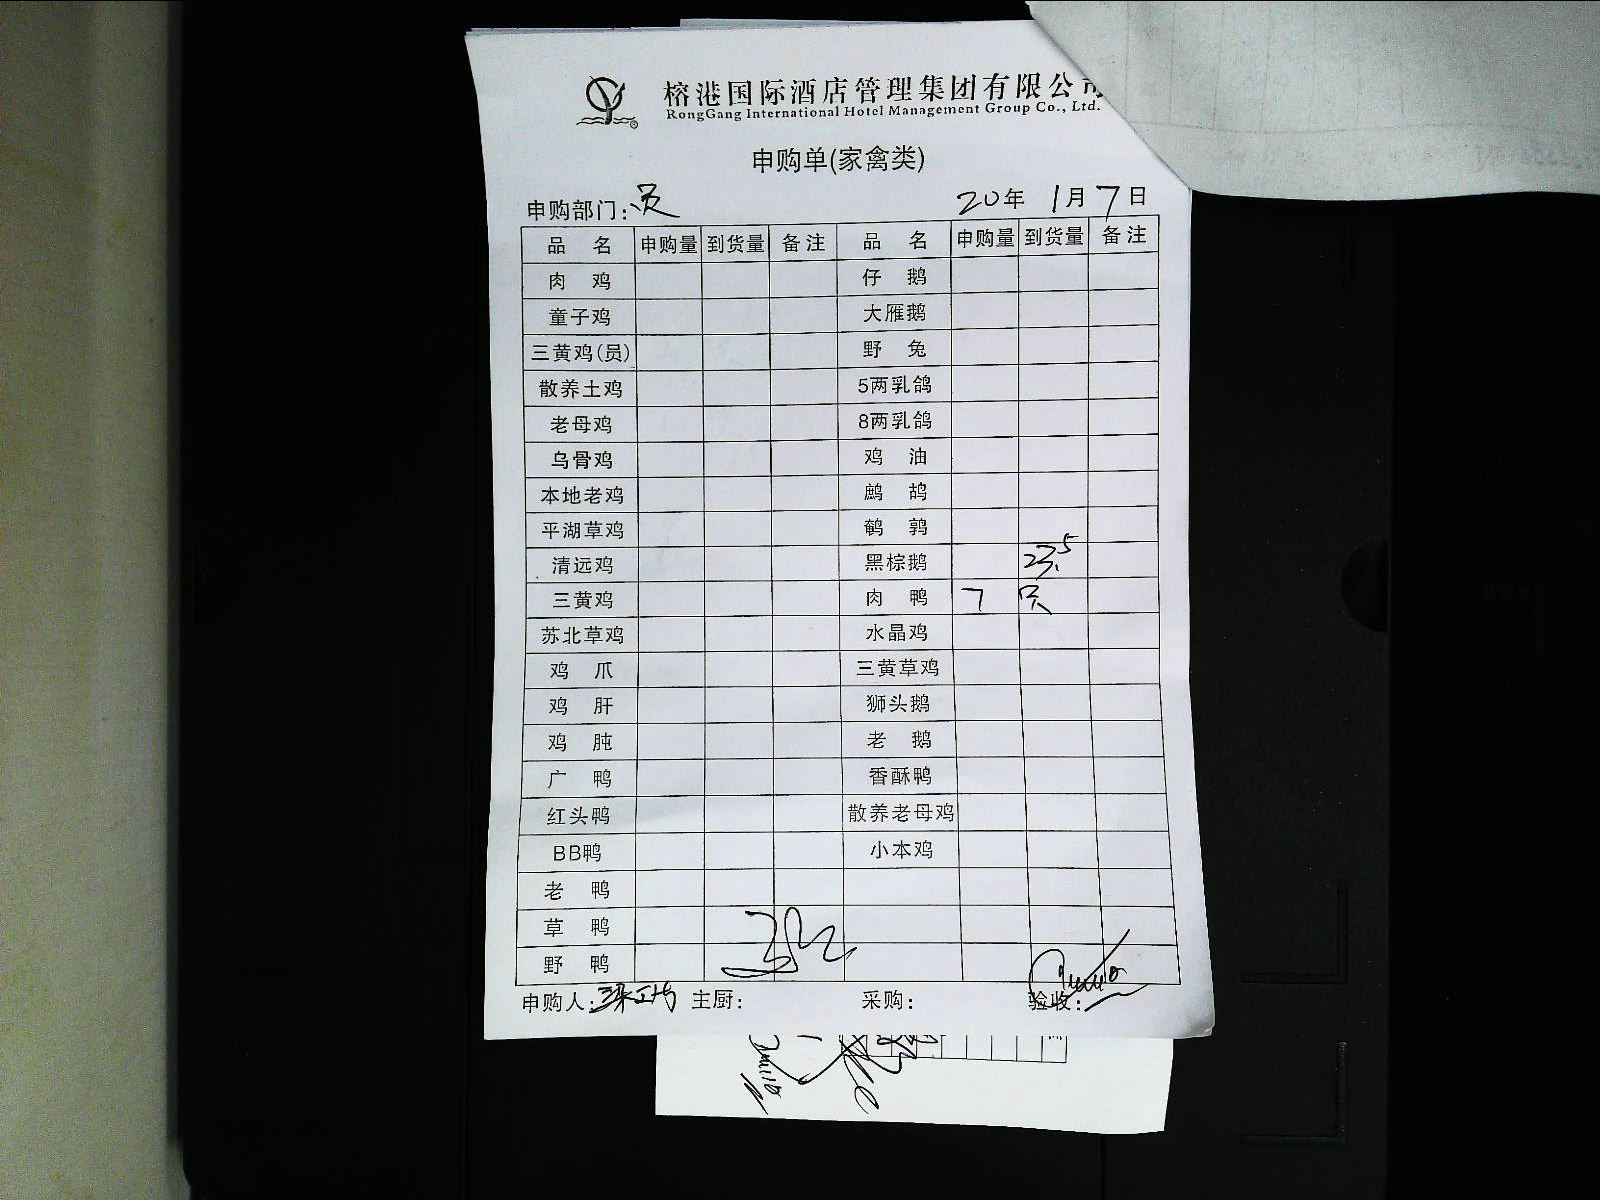 榕港国际酒店管理集团有限公司
RongGang International Hotel Management Group Co., Ltd.
申购单(家禽类)
申购部门：员 20年 1月 7日
品 名 申购量 到货量 备注 品 名 申购量 到货量 备注
肉 鸡 仔 鹅
童子鸡 大雁鹅
三黄鸡(员) 野 兔
散养土鸡 5两乳鸽
老母鸡 8两乳鸽
乌骨鸡 鸡 油
本地老鸡 鹧 鸪
平湖草鸡 鹌 鹑
清远鸡 黑棕鹅 23.5
三黄鸡 肉 鸭 7 只
苏北草鸡 水晶鸡
鸡 爪 三黄草鸡
鸡 肝 狮头鹅
鸡 肫 老 鹅
广 鸭 香酥鸭
红头鸭 散养老母鸡
BB鸭 小本鸡
老 鸭
草 鸭
野 鸭
申购人： 主厨： 采购： 验收：